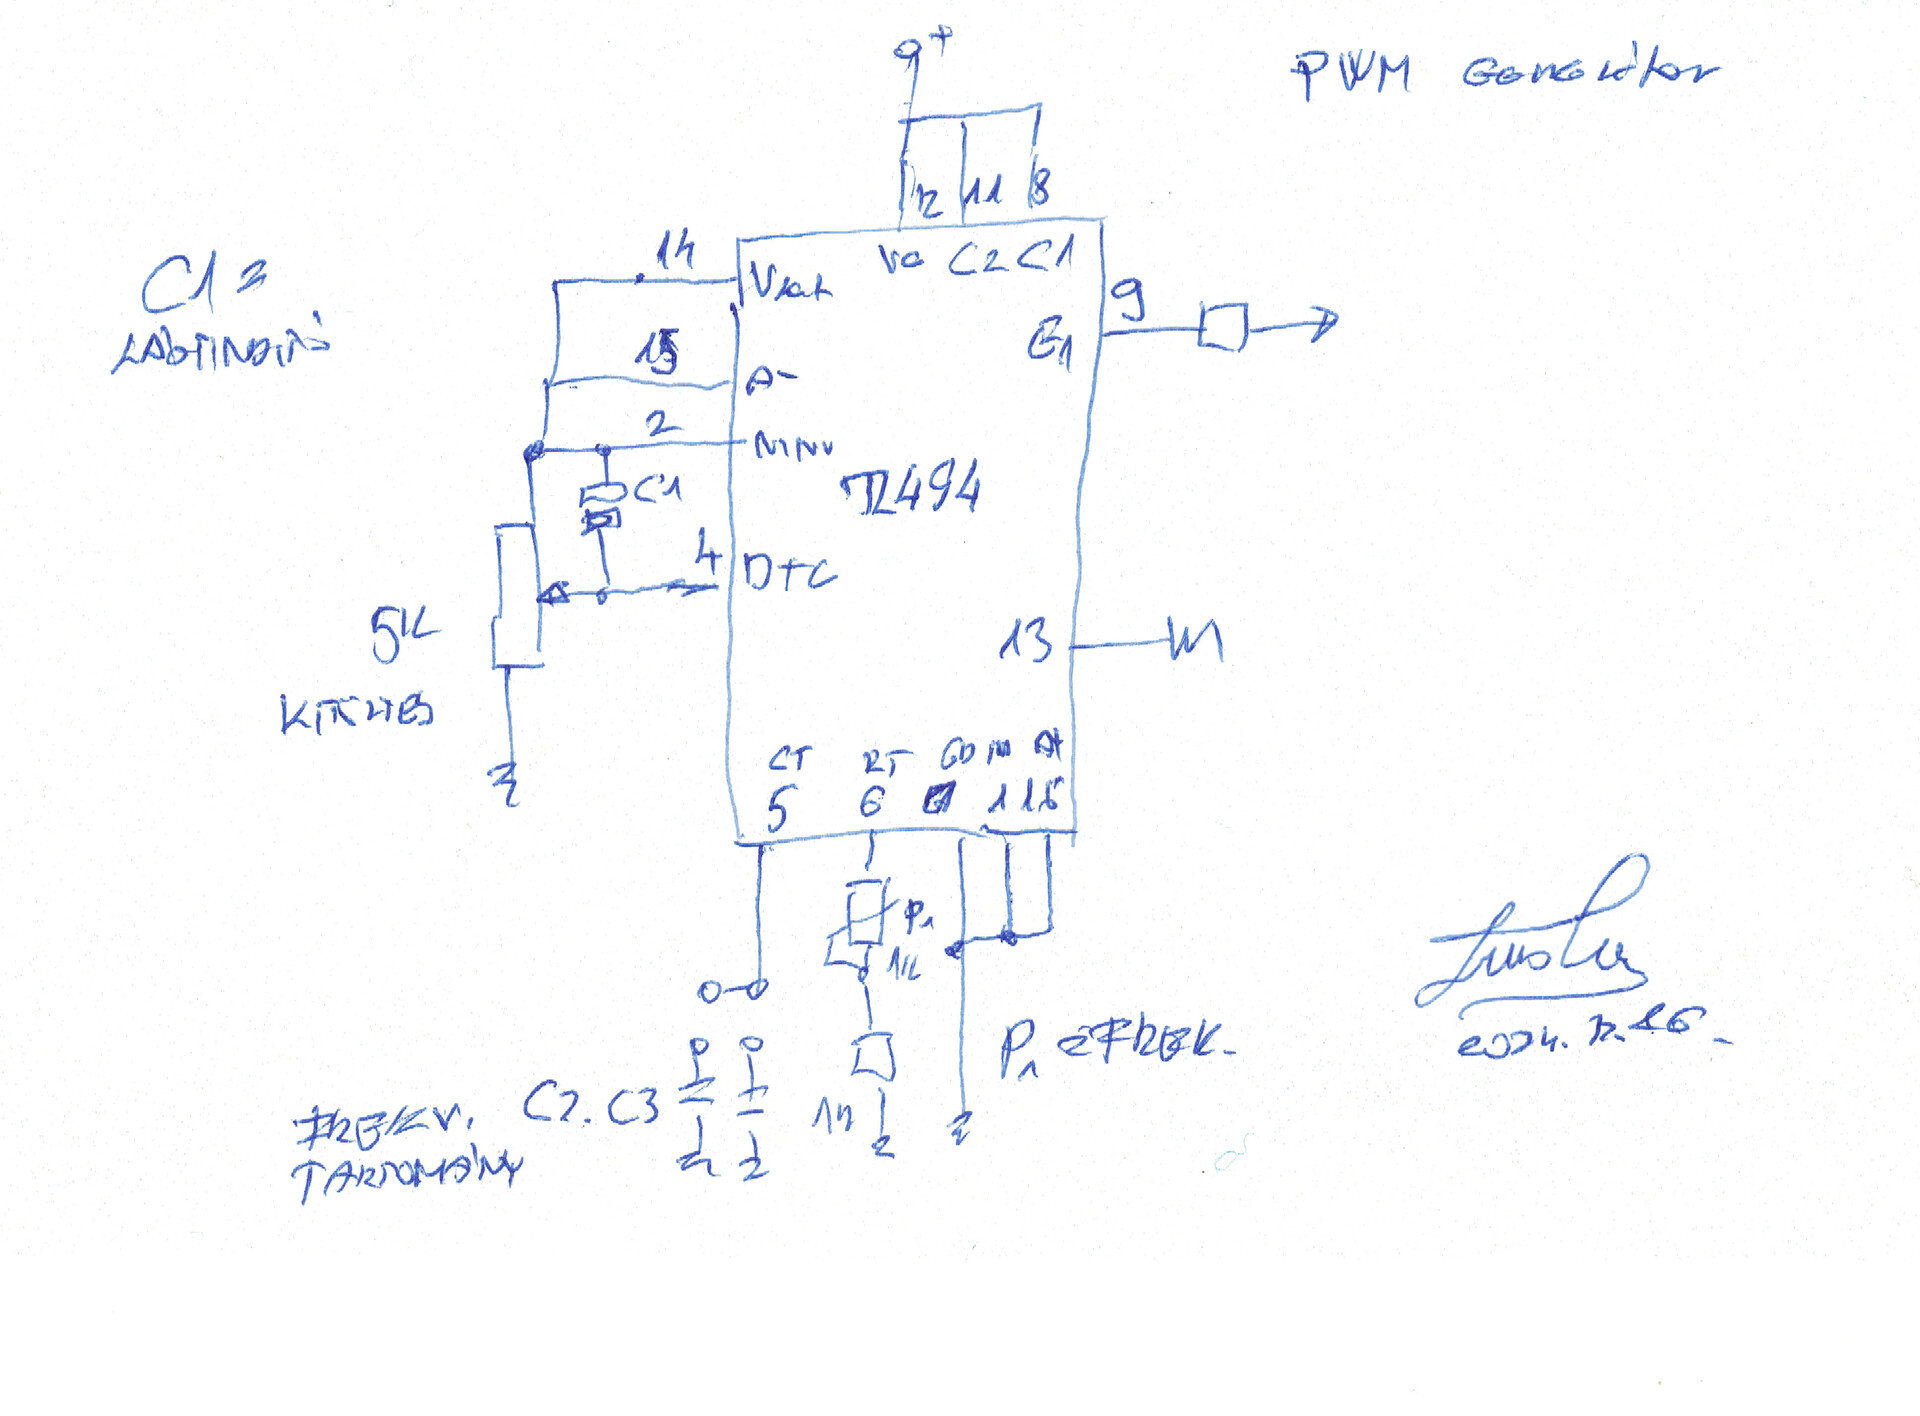 9+
PWM Generátor
12 11 8
14
Vc C2 C1
C1 =
LÁGYINDÍTÓ
Vref
9
E1
15
A-
2
NINV
C1
TL494
4
DTC
5K
KITÖLTÉS
13
CT RT GND A+
5 6 7 1 16
P1
1K
P1 = FREK.
2024. 12. 26.
C2. C3
FREKV.
TARTOMÁNY